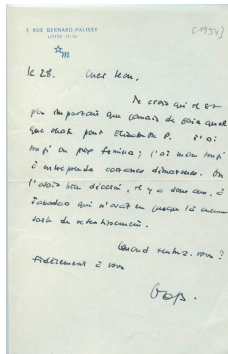 7, RUE BERNARD-PALISSY
LITTRÉ 37-14
m
[1954]
le 28.
Cher Jean,
Je crois qu'il est
plus important que jamais de faire quel
que chose pour Elizabeth P. J'ai
au prix femina ; j'ai
à entreprendre certaines démarches. On
l'avait bien décerné, il y a deux ans, à
qui n'avait eu jusque là aucune
sorte de retentissement.
Quand rentrez-vous ?
Fidèlement à vous